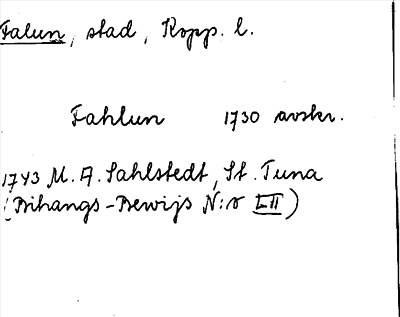 Falun, stad, Kopp. l.
Fahlun 1730 avskr.
1743 M. A. Sahlstedt, St. Tuna
(Bihangs-Bewijs N:o LII)